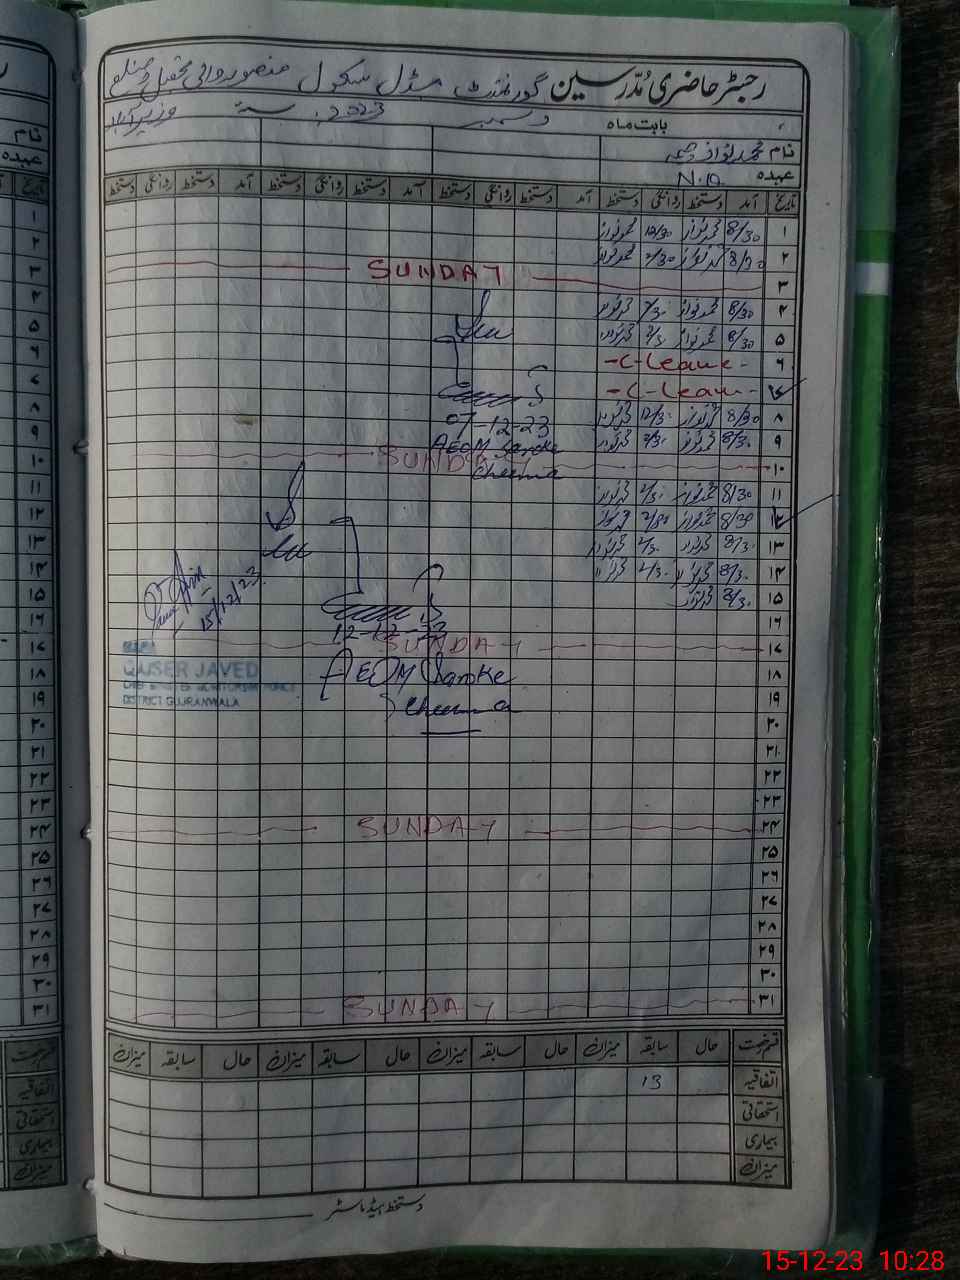 رجسٹر حاضری مُدّرسین گورنمنٹ مڈل سکول منصور والی تحصیل و ضلع
بابت ماہ دسمبر 2023ء سنہ وزیرآباد
نام محمد نواز
عہدہ N.Q.
تاریخ آمد دستخط روانگی دستخط آمد دستخط روانگی دستخط آمد دستخط روانگی دستخط آمد دستخط روانگی دستخط
۱ 8/30 محمد نواز 12/30 محمد نواز
۲ 8/30 محمد نواز 2/30 محمد نواز
۳ SUNDAY
۴ 8/30 محمد نواز 2/30 محمد نواز
۵ 8/30 محمد نواز 2/30 محمد نواز
۶ -C-Leave-
۷ -C-Leave-
۸ 8/30 محمد نواز 12/30 محمد نواز 07-12-23
۹ 8/30 محمد نواز 2/30 محمد نواز AEOM Saroke
۱۰ SUNDAY Cheema
۱۱ 8/30 محمد نواز 2/30 محمد نواز
۱۲ 8/30 محمد نواز 2/30 محمد نواز
۱۳ 8/30 محمد نواز 2/30 محمد نواز
۱۴ 8/30 محمد نواز 2/30 محمد نواز
۱۵ 8/30 محمد نواز 15/12/23
۱۶ 12-12-23
۱۷ SUNDAY
۱۸ AEOM Saroke QAISER JAVED
۱۹ Cheema DISTRICT GUJRANWALA
۲۰
۲۱
۲۲
۲۳
۲۴ SUNDAY
۲۵
۲۶
۲۷
۲۸
۲۹
۳۰
۳۱ SUNDAY
قسم رخصت حال سابقہ میزان حال سابقہ میزان حال سابقہ میزان حال سابقہ میزان
اتفاقیہ 13
استحقاقی
بیماری
میزان
دستخط ہیڈ ماسٹر
15-12-23 10:28